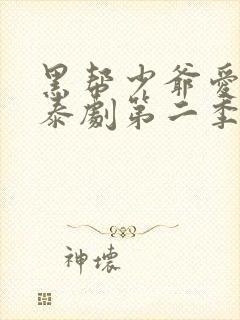 黑帮少爷爱
泰劇第二季
神壞